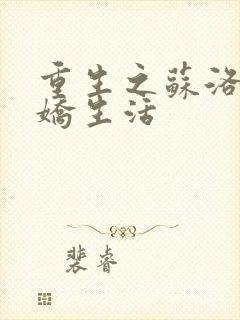 重生之蘇洛
嬌生活
裴睿